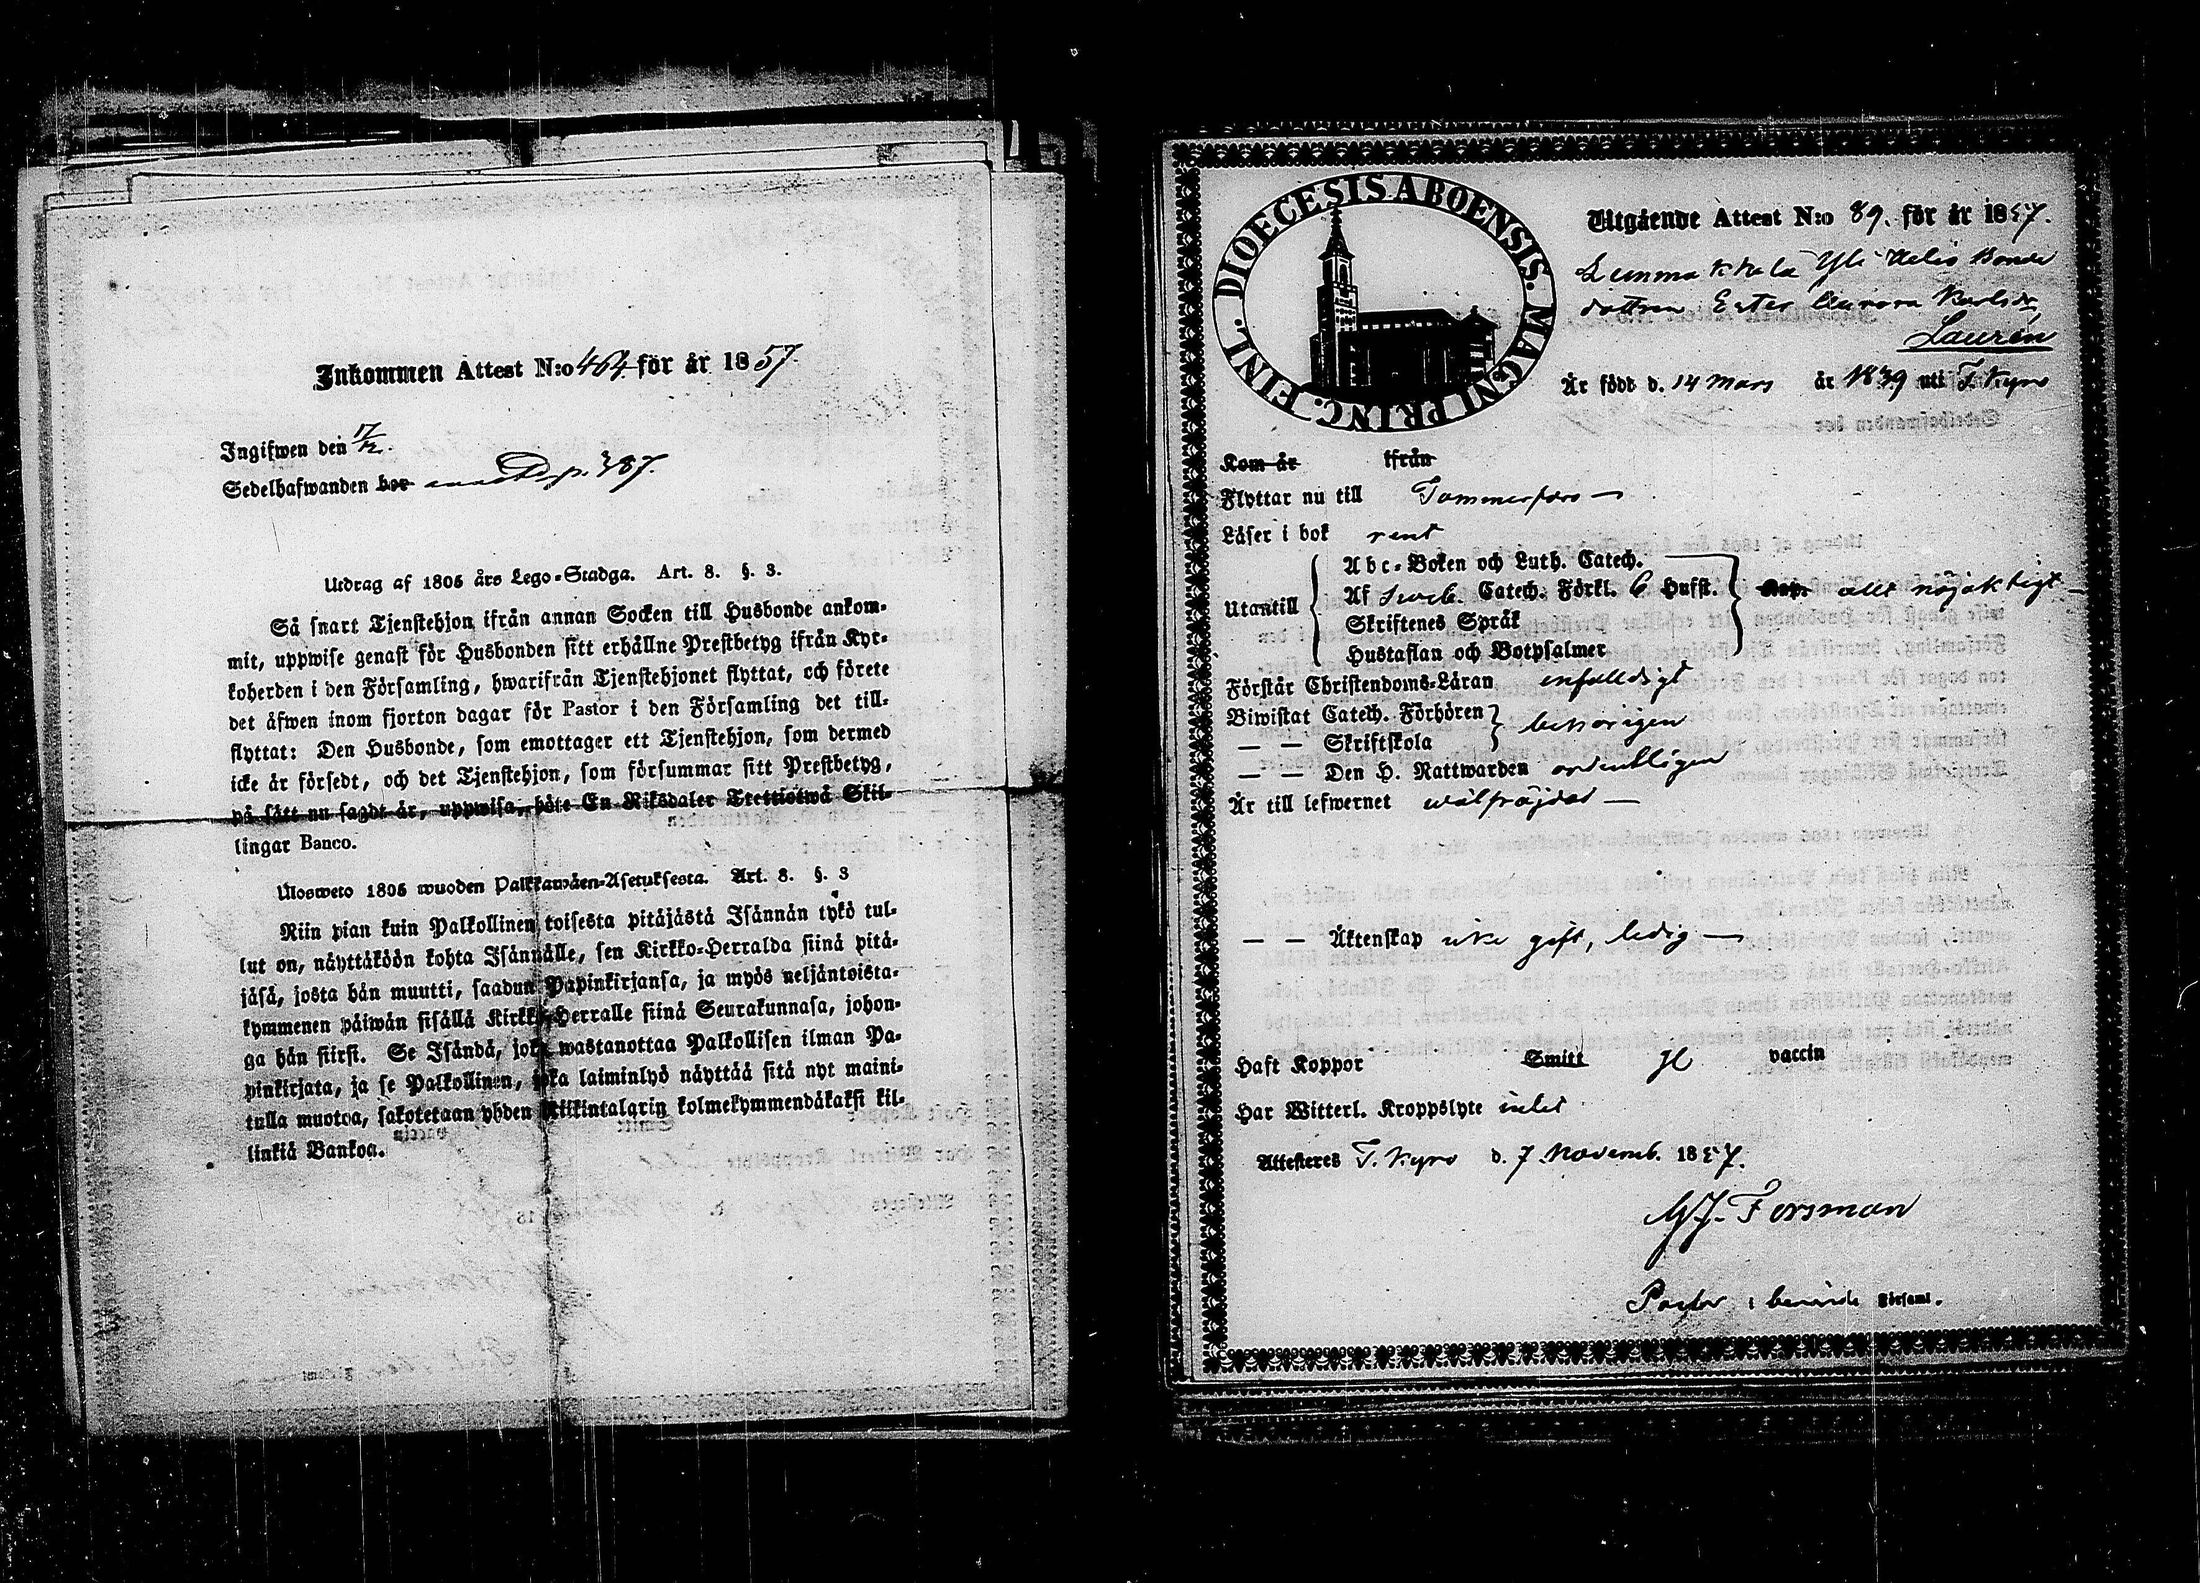 Inkommen Attest N:o 464 för år 1857.
Ingifwen den 17/12.
Sedelhafwanden bor p. 387.
Utdrag af 1805 års Lego-Stadga. Art. 8. §. 3.
Så snart Tjenstehjon ifrån annan Socken till Husbonde ankom-
mit, uppwise genast för Husbonden sitt erhållne Prestbetyg ifrån Kyr-
koherden i den Församling, hwarifrån Tjenstehjonet flyttat, och förete
det äfwen inom fjorton dagar för Pastor i den Församling det till-
flyttat: Den Husbonde, som emottager ett Tjenstehjon, som dermed
icke är försedt, och det Tjenstehjon, som försummar sitt Prestbetyg,
på sätt nu sagdt är, uppwisa, böte En Riksdaler Trettiotwå Skil-
lingar Banco.
Ulosweto 1805 wuoden Palkkawäen-Asetuksesta. Art. 8. §. 3
Niin pian kuin Palkollinen toisesta pitäjästä Isännän tykö tul-
lut on, näyttäköön kohta Isännälle, sen Kirkko-Herralda siinä pitä-
jäsä, josta hän muutti, saadun Papinkirjansa, ja myös neljäntoista-
kymmenen päiwän sisällä Kirkko-Herralle siinä Seurakunnasa, johon-
ga hän siirsi. Se Isändä, joka wastanottaa Palkollisen ilman Pa-
pinkirjata, ja se Palkollinen, joka laiminlyö näyttää sitä nyt maini-
tulla muotoa, sakotetaan yhden Riikintalarin kolmekymmendäkaksi kil-
linkiä Bankoa.
DIOECESIS ABOENSIS. MAGNI PRINC. FINL.
Utgående Attest N:o 89. för år 1857.
Yli Bonde
dottren Ester Aurora Karlsdr
Laurén
Är född d. 14 Mars år 1839 uti T. Kyro
Kom år ifrån
Flyttar nu till Tammerfors
Läser i bok rent
Utantill
Abc-Boken och Luth. Catech.
Af Sveb. Catech. Förkl. 6 Hufst.
Skriftenes Språk
Hustaflan och Botpsalmer
allt nöjaktigt
Förstår Christendoms-Läran enfaldigt
Biwistat Catech. Förhören
— — Skriftskola
behörigen
— — Den H. Nattwarden ordentligen
Är till lefwernet wälfräjdad
— — Äktenskap icke gift, ledig
Haft Koppor Smitt vaccin
Har Witterl. Kroppslyte intet
Attesteres T. Kyro d. 7 Novemb. 1857.
Forsman
Pastor i berörde Församl.